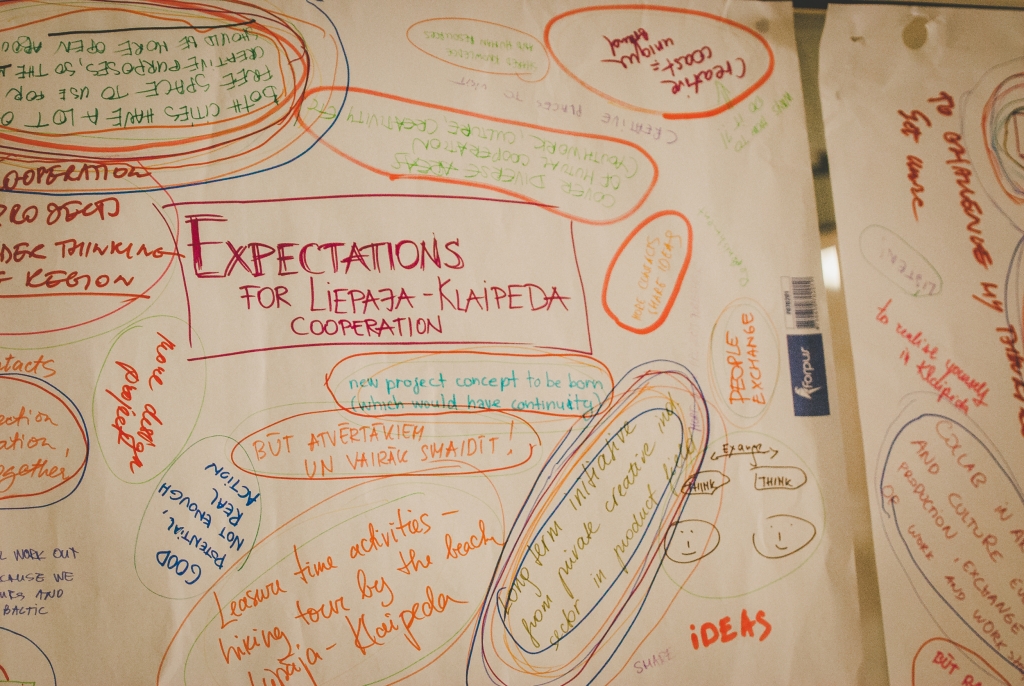 BOTH CITIES HAVE A LOT O
FREE SPACE TO USE FOR
CREATIVE PURPOSES, SO THE
SHOULD BE MORE OPEN ABO
SHARES KNOWLEDGE
AND HUMAN RESOURCES
Creative
coast =
unique
brand
CREATIVE PLACES TO VISIT
COVER DIVERSE AREAS
OF MUTUAL COOPERATION
(YOUTHWORK, CULTURE, CREATIVITY ETC
OOPERATION
PROJECTS
DER THINKING
F REGION
EXPECTATIONS
FOR LIEPAJA - KLAIPEDA
COOPERATION
MORE CONTACTS
SHARE IDEAS
PEOPLE
EXCHANGE
forpus
new project concept to be born
(which would have continuity)
BŪT ATVĒRTĀKIEM
UN VAIRĀK SMAIDĪT!
more design
project
ntacts
ection
ation,
ogether,
GOOD
POTENTIAL,
NOT ENOUGH
REAL
ACTION
WORK OUT
CAUSE WE
URS AND
BALTIC
Leasure time activities -
hiking tour by the beach
Liepāja - Klaipeda
Long term initiative
from private creative ind
sector in product field
THINK
THINK
SHARE
iDEAS
TO CHANGE MY
Get more
LISTEN!
to realise yourself
in Klaipeda
COLLAB IN A
AND CULTURE EVE
PRODUCTION, EXCHANGE
OF WORK AND WORK
BŪT